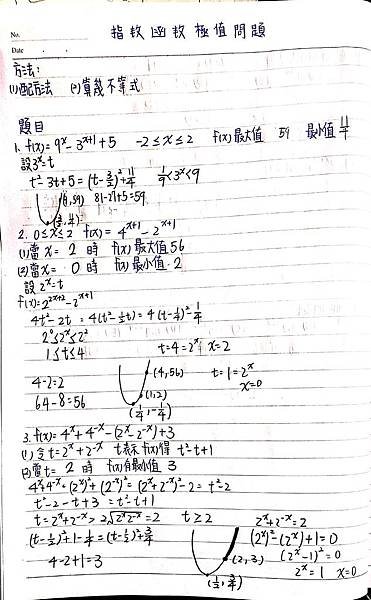 No.
Date
指数函数極值問題
方法:
(1)配方法 (2)算幾不等式
題目
1. f(x)=9^x-3^{x+1}+5 -2≤x≤2 f(x)最大值 59 最小值 11/4
設3^x=t
t²-3t+5=(t-3/2)²+11/4 1/9<3^x<9
(9,59) 81-27+5=59
(3/2,11/4)
2. 0≤x≤2 f(x)=4^{x+1}-2^{x+1}
(1)當x=2時 f(x)最大值56
(2)當x=0時 f(x)最小值.2
設2^x=t
f(x)=2^{2x+2}-2^{x+1}
4t²-2t=4(t²-½t)=4(t-¼)²-¼
2⁰≤2^x≤2²
1≤t≤4 t=4=2^x x=2
4-2=2 (4,56) t=1=2^x
x=0
64-8=56 (1,2)
(¼,-¼)
3. f(x)=4^x+4^{-x}-(2^x-2^{-x})+3
(1)令t=2^x+2^{-x} t表示f(x)得 t²-t+1
(2)當t=2時 f(x)有最小值 3
4^x+4^{-x}=(2^x)²+(2^{-x})²=(2^x+2^{-x})²-2=t²-2
t²-2-t+3=t²-t+1
t=2^x+2^{-x}≥2√(2^x2^{-x})=2 t≥2 2^x+2^{-x}=2
(t-½)²+1-¼=(t-½)²+¾ (2^x)²-(2^x)+1=0
4-2+1=3 (2,3) (2^x-1)²=0
(½,¾) 2^x=1 x=0